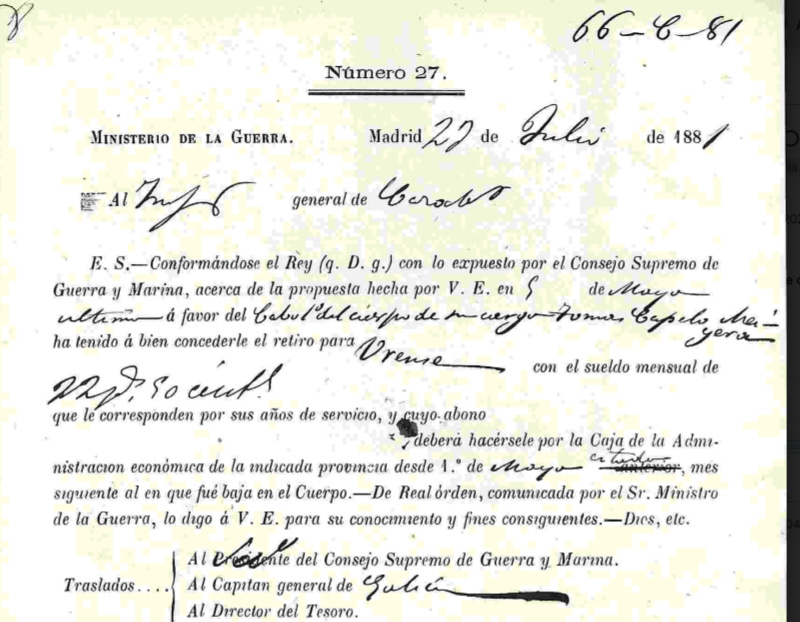 66-C-81
Número 27.
MINISTERIO DE LA GUERRA. Madrid 27 de Julio de 1881
Al general de
E. S.—Conformándose el Rey (q. D. g.) con lo expuesto por el Consejo Supremo de
Guerra y Marina, acerca de la propuesta hecha por V. E. en 5 de Mayo
ultimo á favor del Cabo 1º del cuerpo de su cargo Tomas Capelo
ha tenido á bien concederle el retiro para Orense con el sueldo mensual de
22 p.s 50 cént.s
que le corresponden por sus años de servicio, y cuyo abono
deberá hacérsele por la Caja de la Admi-
nistracion económica de la indicada provincia desde 1.º de Mayo citado anterior, mes
siguiente al en que fué baja en el Cuerpo.—De Real órden, comunicada por el Sr. Ministro
de la Guerra, lo digo á V. E. para su conocimiento y fines consiguientes.—Dios, etc.
Traslados....
Al Presidente del Consejo Supremo de Guerra y Marina.
Al Capitan general de Galicia
Al Director del Tesoro.